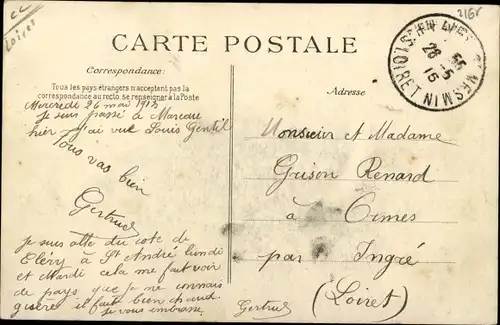 CC
Loiret
216r
CARTE POSTALE
Correspondance:
Tous les pays étrangers n'acceptent pas la
correspondance au recto se renseigner à la Poste
Adresse
Mercredi 26 mai 1915
je suis passé à Mareau
hier j'ai vue Louis Gentil
Tous vas bien
Gertrud
je suis allé du coté de
Cléry à St André lundi
et Mardi cela me fait voir
de pays que je ne connais
guère il fait bien chaud
je vous embrasse
Gertrud
Monsieur et Madame
Grison Renard
à Ormes
par Ingré
(Loiret)
ST HILAIRE ST MESMIN
LOIRET
26 -5
15